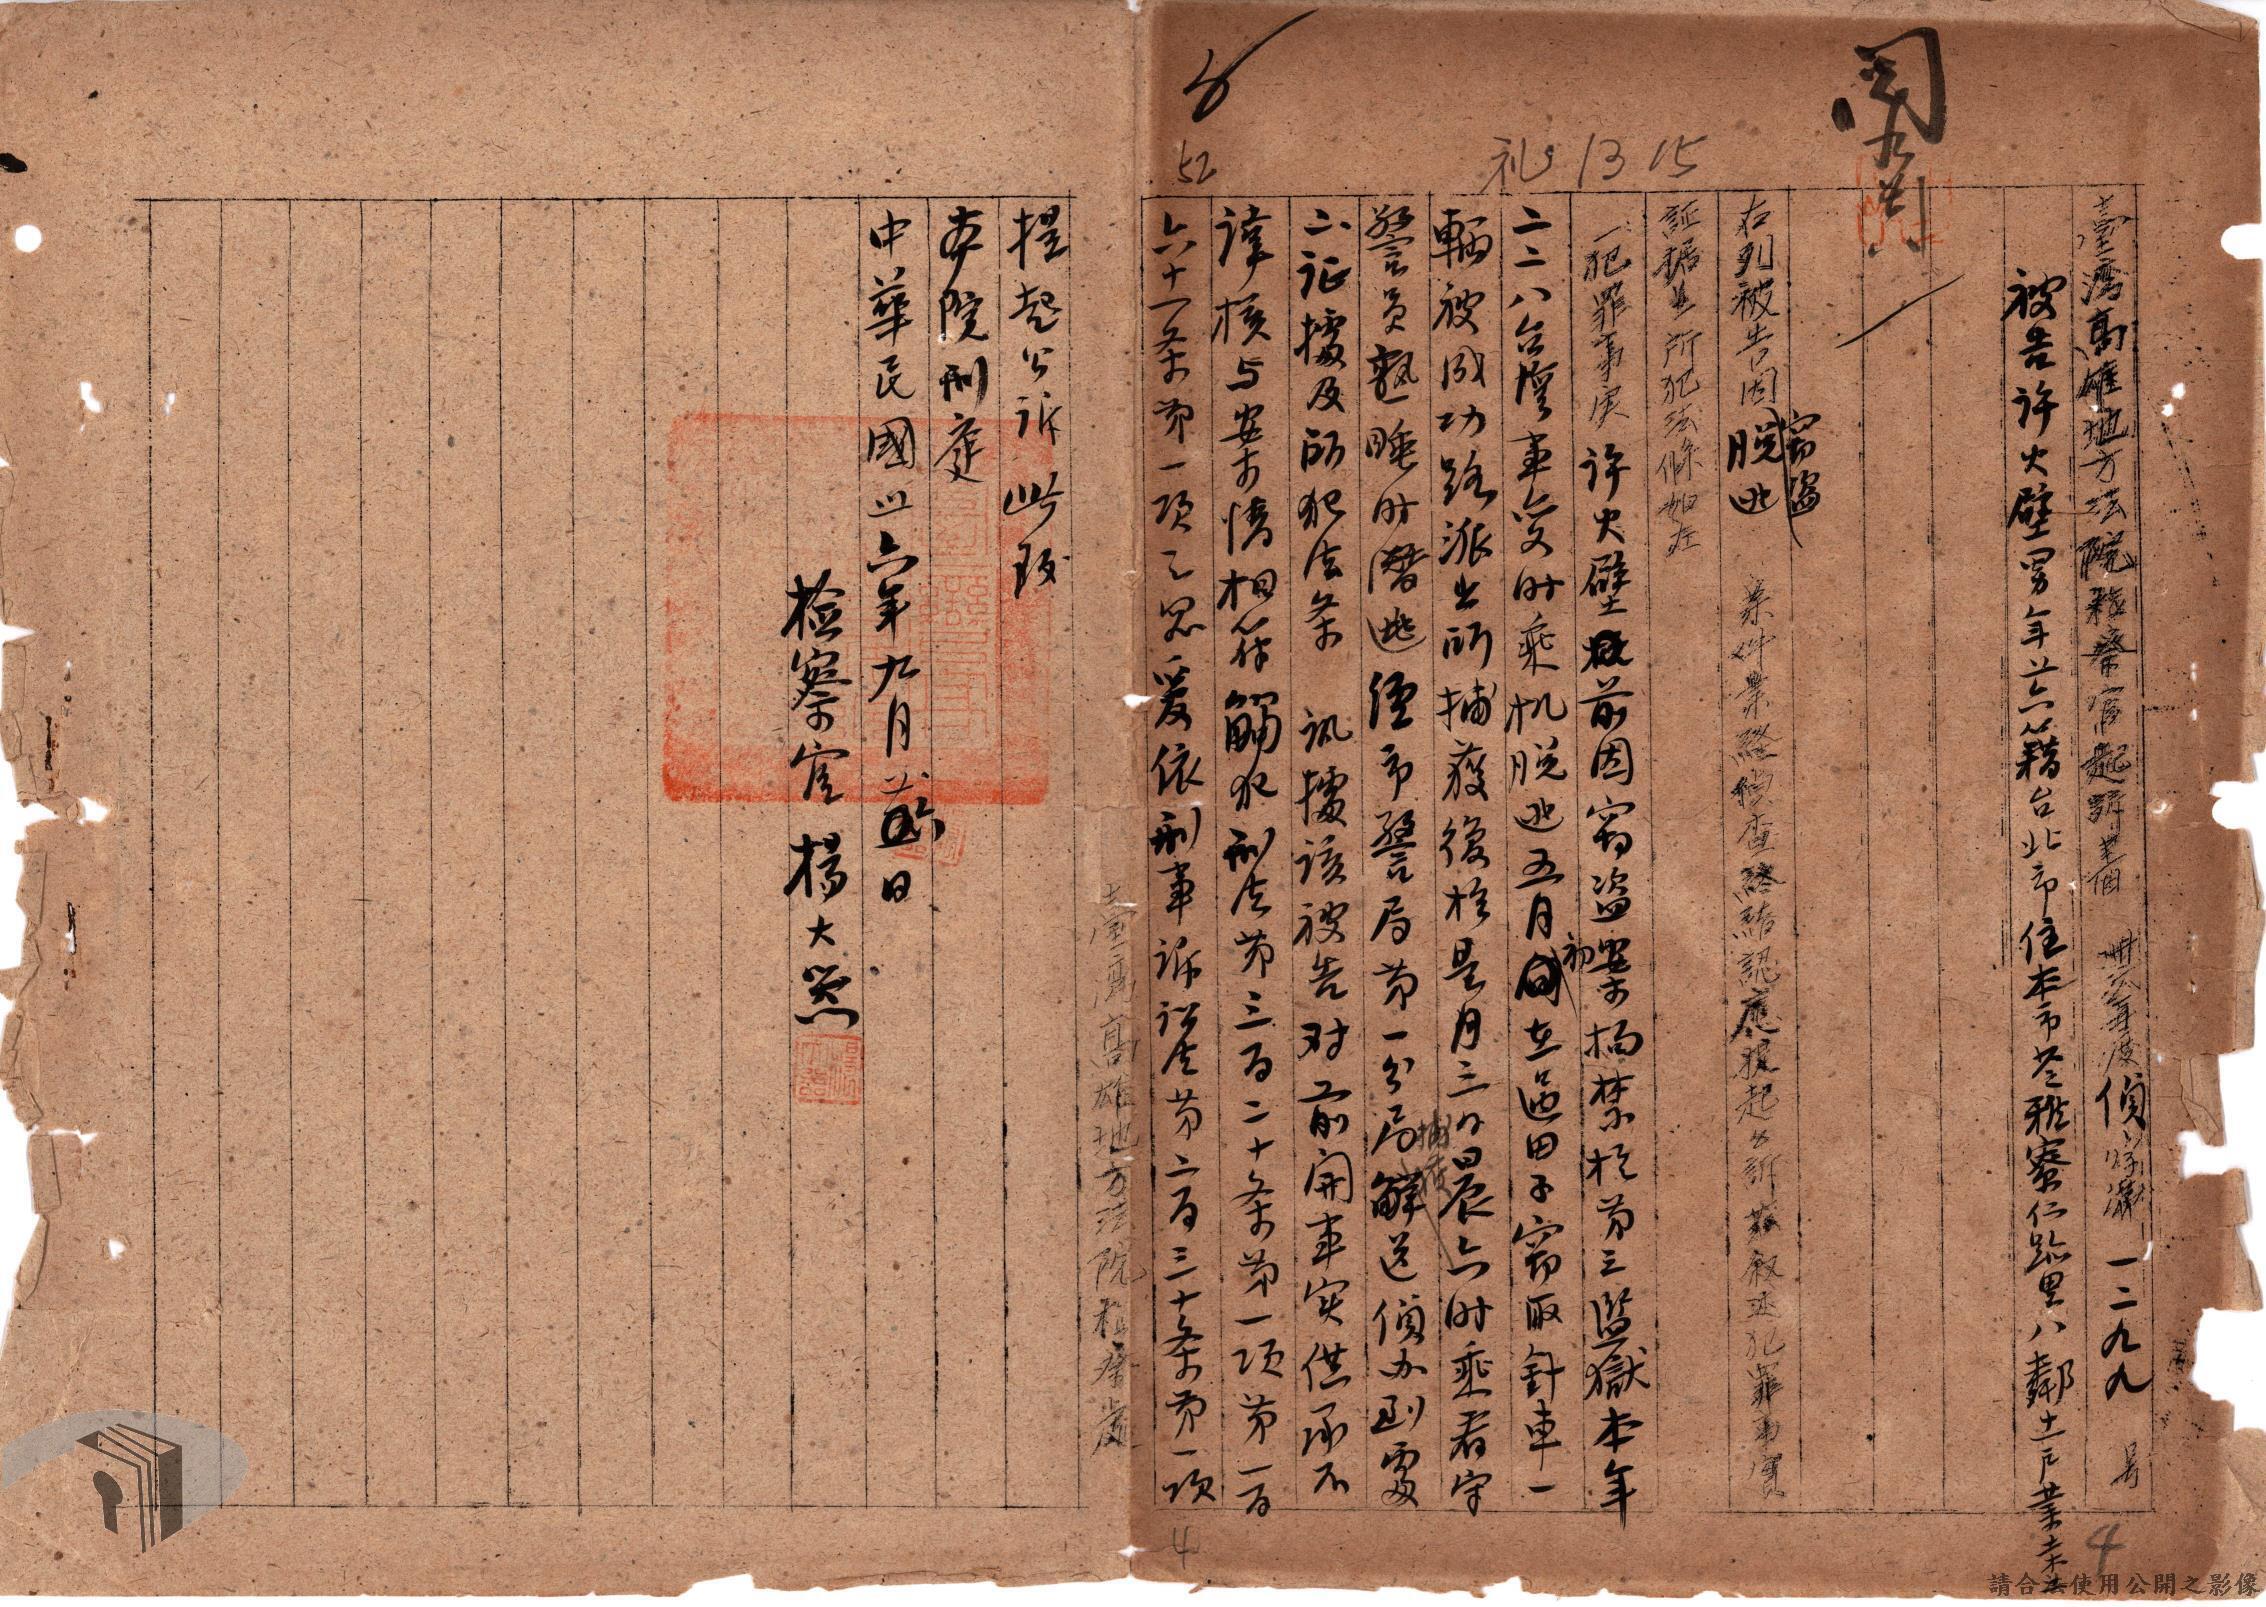 臺灣高雄地方法院檢察官起訴書 卅六年度偵字第一二九九號
被告許火壁男年廿六籍台北市住本市苓雅寮仁路里八鄰十一戶業
右列被告因竊盜脫逃案件業經偵查終結認應提起公訴茲敘述犯罪事實
証據並所犯法條如左
一犯罪事实 許火壁前因窃盜案初押禁於第三監獄本年
二二八台灣事变时乘机脫逃五月间在過田子窃取針車一
輛被成功路派出所捕獲後於是月三日晨六时乘看守
警員熟睡时潛逃經市警局第一分局捕獲解送偵办到處
二、证據及所犯法条 訊據該被告对前開事实供承不
諱核与案情相符觸犯刑法第三百二十条第一项第一百
六十一条第一项之罪爰依刑事诉讼法第二百三十条第一项
提起公诉此致
本院刑庭
中華民國卅六年九月 日
檢察官 楊大器
臺灣高雄地方法院檢察處
52
礼 13 15
閱
4
4
請合法使用公開之影像